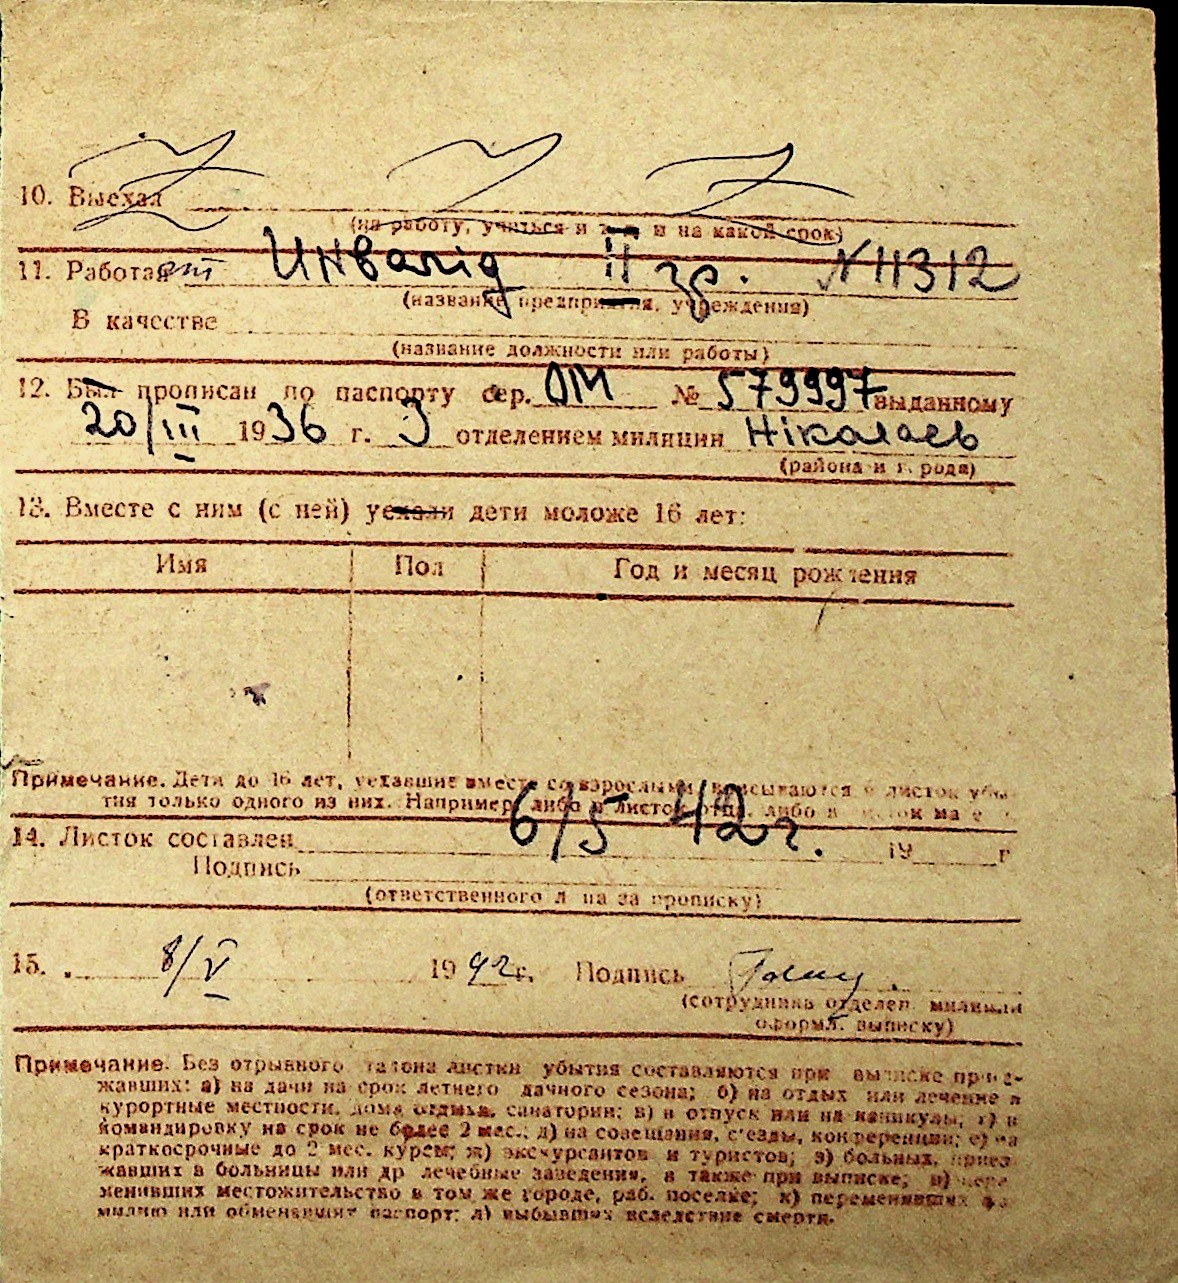 10. Выехал
(на работу, учиться и т. д. и на какой срок)
11. Работает Инвалід II гр. №11312
(название предприятия, учреждения)
В качестве
(название должности или работы)
12. Был прописан по паспорту сер. ОМ № 579997 выданному
20/III 1936 г. 3 отделением милиции Ніколаев
(района и города)
13. Вместе с ним (с ней) уехали дети моложе 16 лет:
Имя Пол Год и месяц рождения
Примечание. Дети до 16 лет, уехавшие вместе со взрослыми, вписываются в листок убы-
тия только одного из них. Например, либо в листок отца, либо в листок ма
6/5 42 г.
14. Листок составлен 19 г
Подпись
(ответственного лица за прописку)
15. 8/V 1942 г. Подпись
(сотрудника отделен. милиции
оформл. выписку)
Примечание. Без отрывного талона листки убытия составляются при выписке приез-
жавших: а) на дачи на срок летнего дачного сезона; б) на отдых или лечение в
курортные местности, дома отдыха, санатории; в) в отпуск или на каникулы; г) в
командировку на срок не более 2 мес.; д) на совещания, с'езды, конференции; е) на
краткосрочные до 2 мес. курсы; ж) экскурсантов и туристов; з) больных, приез
жавших в больницы или др лечебные заведения, а также при выписке; и) пере
менивших местожительство в том же городе, раб. поселке; к) переменивших фа
милию или обменявших паспорт; л) выбывших вследствие смерти.